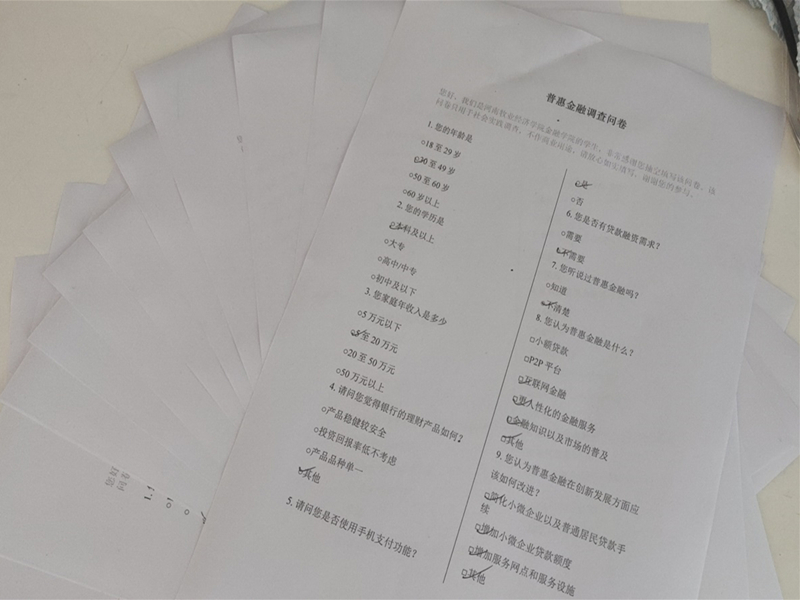 普惠金融调查问卷
您好，我们是河南牧业经济学院金融学院的学生，非常感谢您抽空填写该问卷，该
问卷只用于社会实践调查，不作商业用途，请放心如实填写，谢谢您的参与。
1. 您的年龄是
○18 至 29 岁
○30 至 49 岁
○50 至 60 岁
○60 岁以上
2. 您的学历是
○本科及以上
○大专
○高中/中专
○初中及以下
3. 您家庭年收入是多少
○5 万元以下
○5 至 20 万元
○20 至 50 万元
○50 万元以上
4. 请问您觉得银行的理财产品如何?
○产品稳健较安全
○投资回报率低不考虑
○产品品种单一
○其他
5. 请问您是否使用手机支付功能?
○是
○否
6. 您是否有贷款融资需求?
○需要
○不需要
7. 您听说过普惠金融吗?
○知道
○不清楚
8. 您认为普惠金融是什么?
□小额贷款
□P2P 平台
□互联网金融
□更人性化的金融服务
□金融知识以及市场的普及
□其他
9. 您认为普惠金融在创新发展方面应
该如何改进?
□简化小微企业以及普通居民贷款手
续
□增加小微企业贷款额度
□增加服务网点和服务设施
□其他